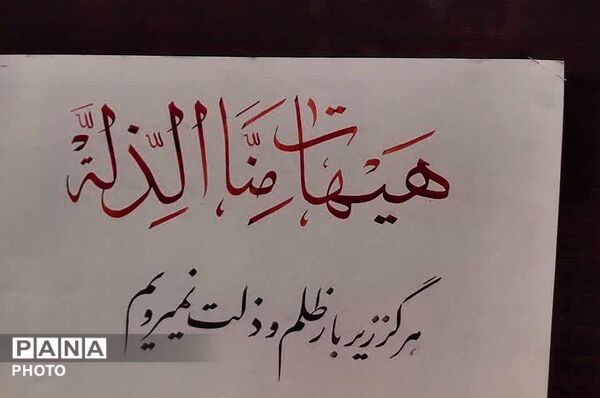 هَيْهَاتَ مِنَّا الذِّلَّةُ
هرگز زیر بار ظلم و ذلت نمیرویم
PANA
PHOTO